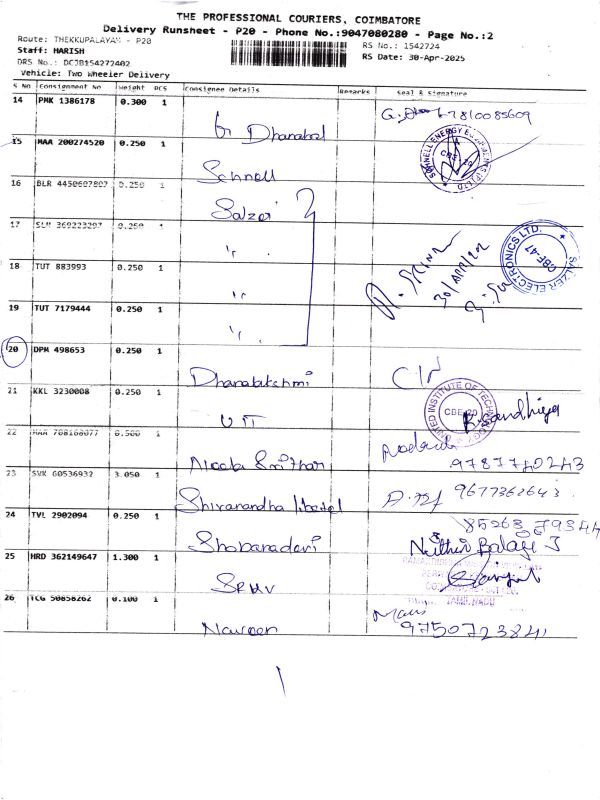 THE PROFESSIONAL COURIERS, COIMBATORE
Delivery Runsheet - P20 - Phone No.:9047080280 - Page No.:2
Route: THEKKUPALAYAM - P20
RS No.: 1542724
Staff: HARISH
RS Date: 30-Apr-2025
DRS No.: DCJB154272402
Vehicle: Two Wheeler Delivery
S No Consignment No Weight PCS Consignee Details Remarks Seal & Signature
14 PMK 1386178 0.300 1 G Dhanabal 7810085609
15 MAA 200274520 0.250 1 Schnell
SCHNELL ENERGY EQUIPMENTS (P) LTD.
16 BLR 0.250 1 Salzer
17 0.250 1 "
SALZER ELECTRONICS LTD.
CBE-47
18 TUT 883993 0.250 1 "
30/APR/
19 TUT 7179444 0.250 1 "
20 DPM 498653 0.250 1 Dhanalakshmi
21 KKL 3230008 0.250 1 UIT
UNITED INSTITUTE OF TECHNOLOGY
CBE-20
B. Sandhiya
22 6.500 1
9787740243
23 SVK 60536932 3.050 1
9677362643
24 TVL 2902094 0.250 1 Shobanadevi
85263 79344
Nithin Balaji J
25 HRD 362149647 1.300 1
TAMIL NADU
26 TCG 50858262 0.100 1 Naveen
Mani
9750723841